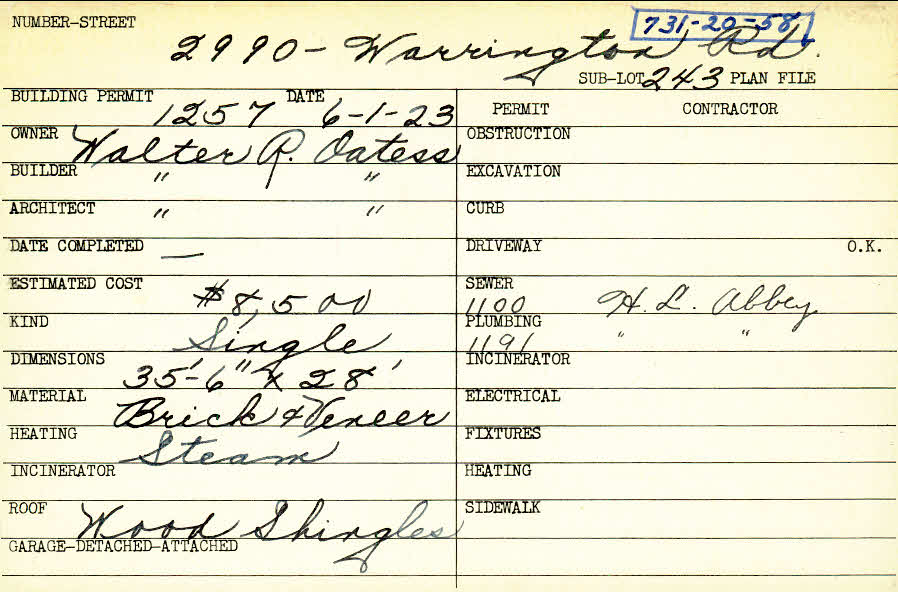 NUMBER-STREET
731-20-58
2990- Warrington Rd.
SUB-LOT 243 PLAN FILE
BUILDING PERMIT 1257 DATE 6-1-23
PERMIT CONTRACTOR
OWNER Walter R. Oatess
OBSTRUCTION
BUILDER " "
EXCAVATION
ARCHITECT " "
CURB
DATE COMPLETED —
DRIVEWAY O.K.
ESTIMATED COST $8,500
SEWER 1100 H. L. Abbey
KIND Single
PLUMBING 1191 " "
DIMENSIONS 35'-6" x 28'
INCINERATOR
MATERIAL Brick & Veneer
ELECTRICAL
HEATING Steam
FIXTURES
INCINERATOR
HEATING
ROOF Wood Shingles
SIDEWALK
GARAGE-DETACHED-ATTACHED